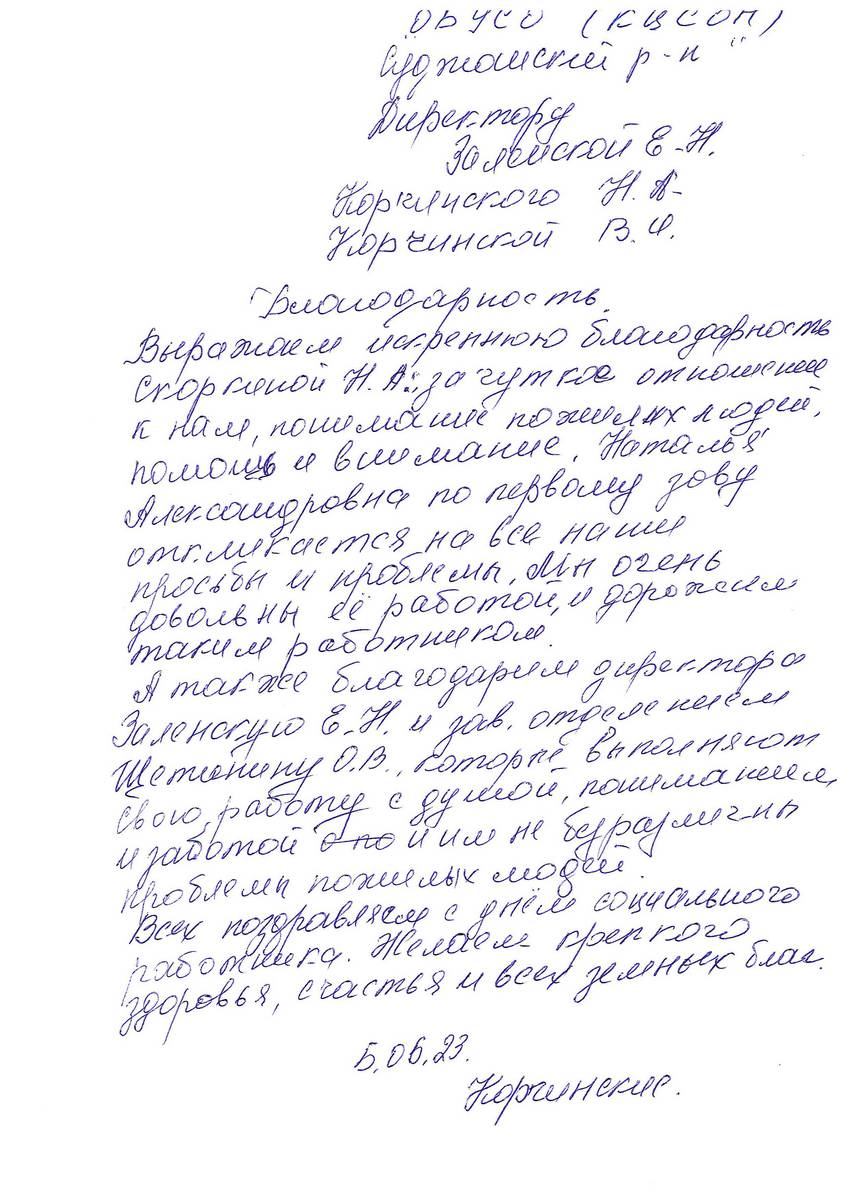 ОБУСО (КЦСОН)
Суджанский р-н"
Директору
Заленской Е.Н.
Корчинского Н.А-
Корчинской В.Ф.
Благодарность.
Выражаем искреннюю благодарность
Скоркиной Н.А., за чуткое отношение
к нам, понимание пожилых людей,
помощь и внимание. Наталья
Александровна по первому зову
откликается на все наши
просьбы и проблемы. Мы очень
довольны её работой, и дорожим
таким работником.
А также благодарим директора
Заленскую Е.Н. и зав. отделением
Щетинину О.В., которые выполняют
свою работу с душой, пониманием,
и заботой с по и им не безразличны
проблемы пожилых людей.
Всех поздравляем с днём социального
работника. Желаем крепкого
здоровья, счастья и всех земных благ.
5.06.23.
Корчинские.